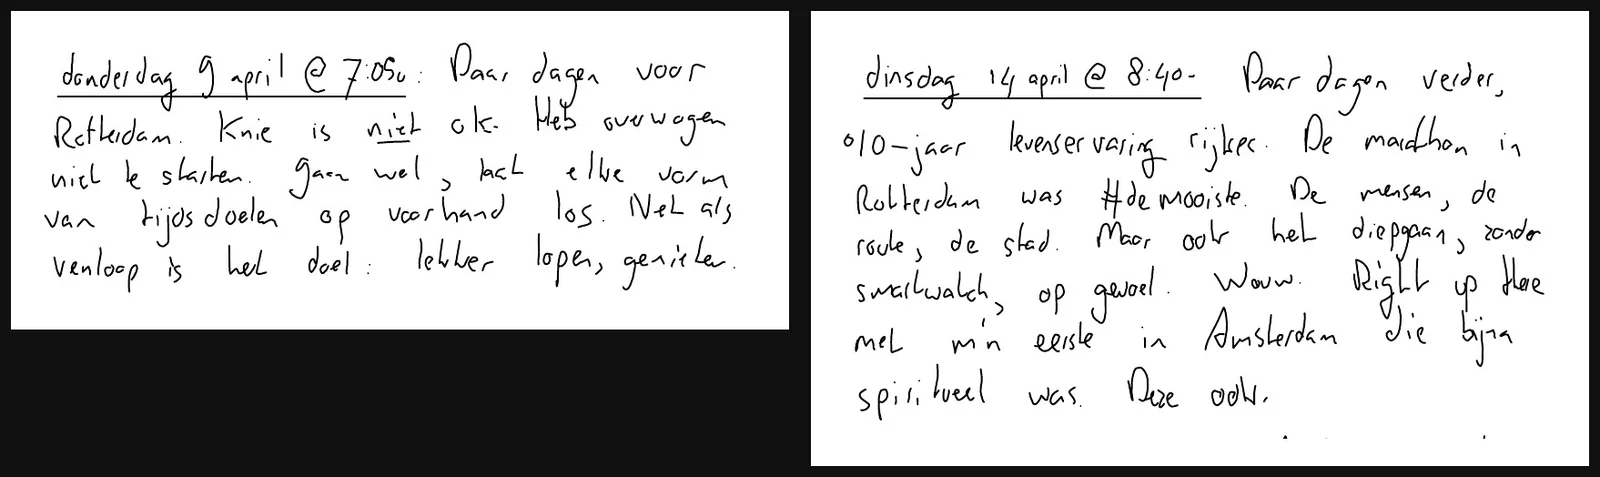 donderdag 9 april @ 7:05u: Paar dagen voor
Rotterdam. Knie is niet ok. Heb overwogen
niet te starten. Gaan wel, laat elke vorm
van tijdsdoelen op voorhand los. Net als
venloop is het doel: lekker lopen, genieten.
dinsdag 14 april @ 8:40- Paar dagen verder,
010-jaar levenservaring rijker. De marathon in
Rotterdam was #demooiste. De mensen, de
route, de stad. Maar ook het diepgaan, zonder
smartwatch, op gevoel. Wouw. Right up there
met m'n eerste in Amsterdam die bijna
spiritueel was. Deze ook.